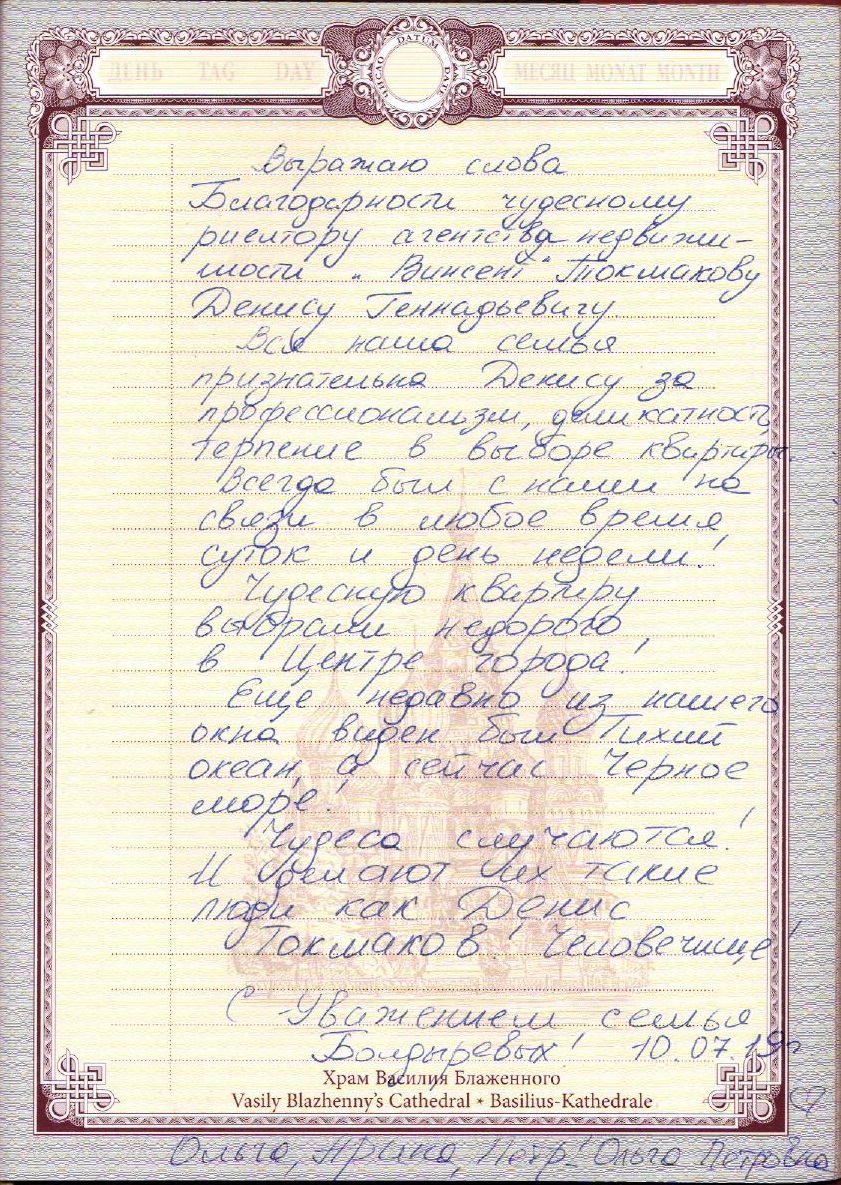 ДЕНЬ TAG DAY
ЧИСЛО DATUM DATE
МЕСЯЦ MONAT MONTH
Выражаю слова
Благодарности чудесному
риелтору агентства недвижи-
мости „Винсент" Токмакову
Денису Геннадьевичу.
Вся наша семья
признательна Денису за
профессионализм, деликатность,
терпение в выборе квартиры.
Всегда был с нами на
связи в любое время
суток и день недели!
Чудесную квартиру
выбрали недорого
в Центре города!
Еще недавно из нашего
окна виден был Тихий
океан, а сейчас Черное
море!
Чудеса случаются!
И делают их такие
люди как Денис
Токмаков! Человечище!
С Уважением семья
Болдыревых! 10.07.19г
Храм Василия Блаженного
Vasily Blazhenny's Cathedral • Basilius-Kathedrale
Ольга, Арина, Петр! Ольга Петровна